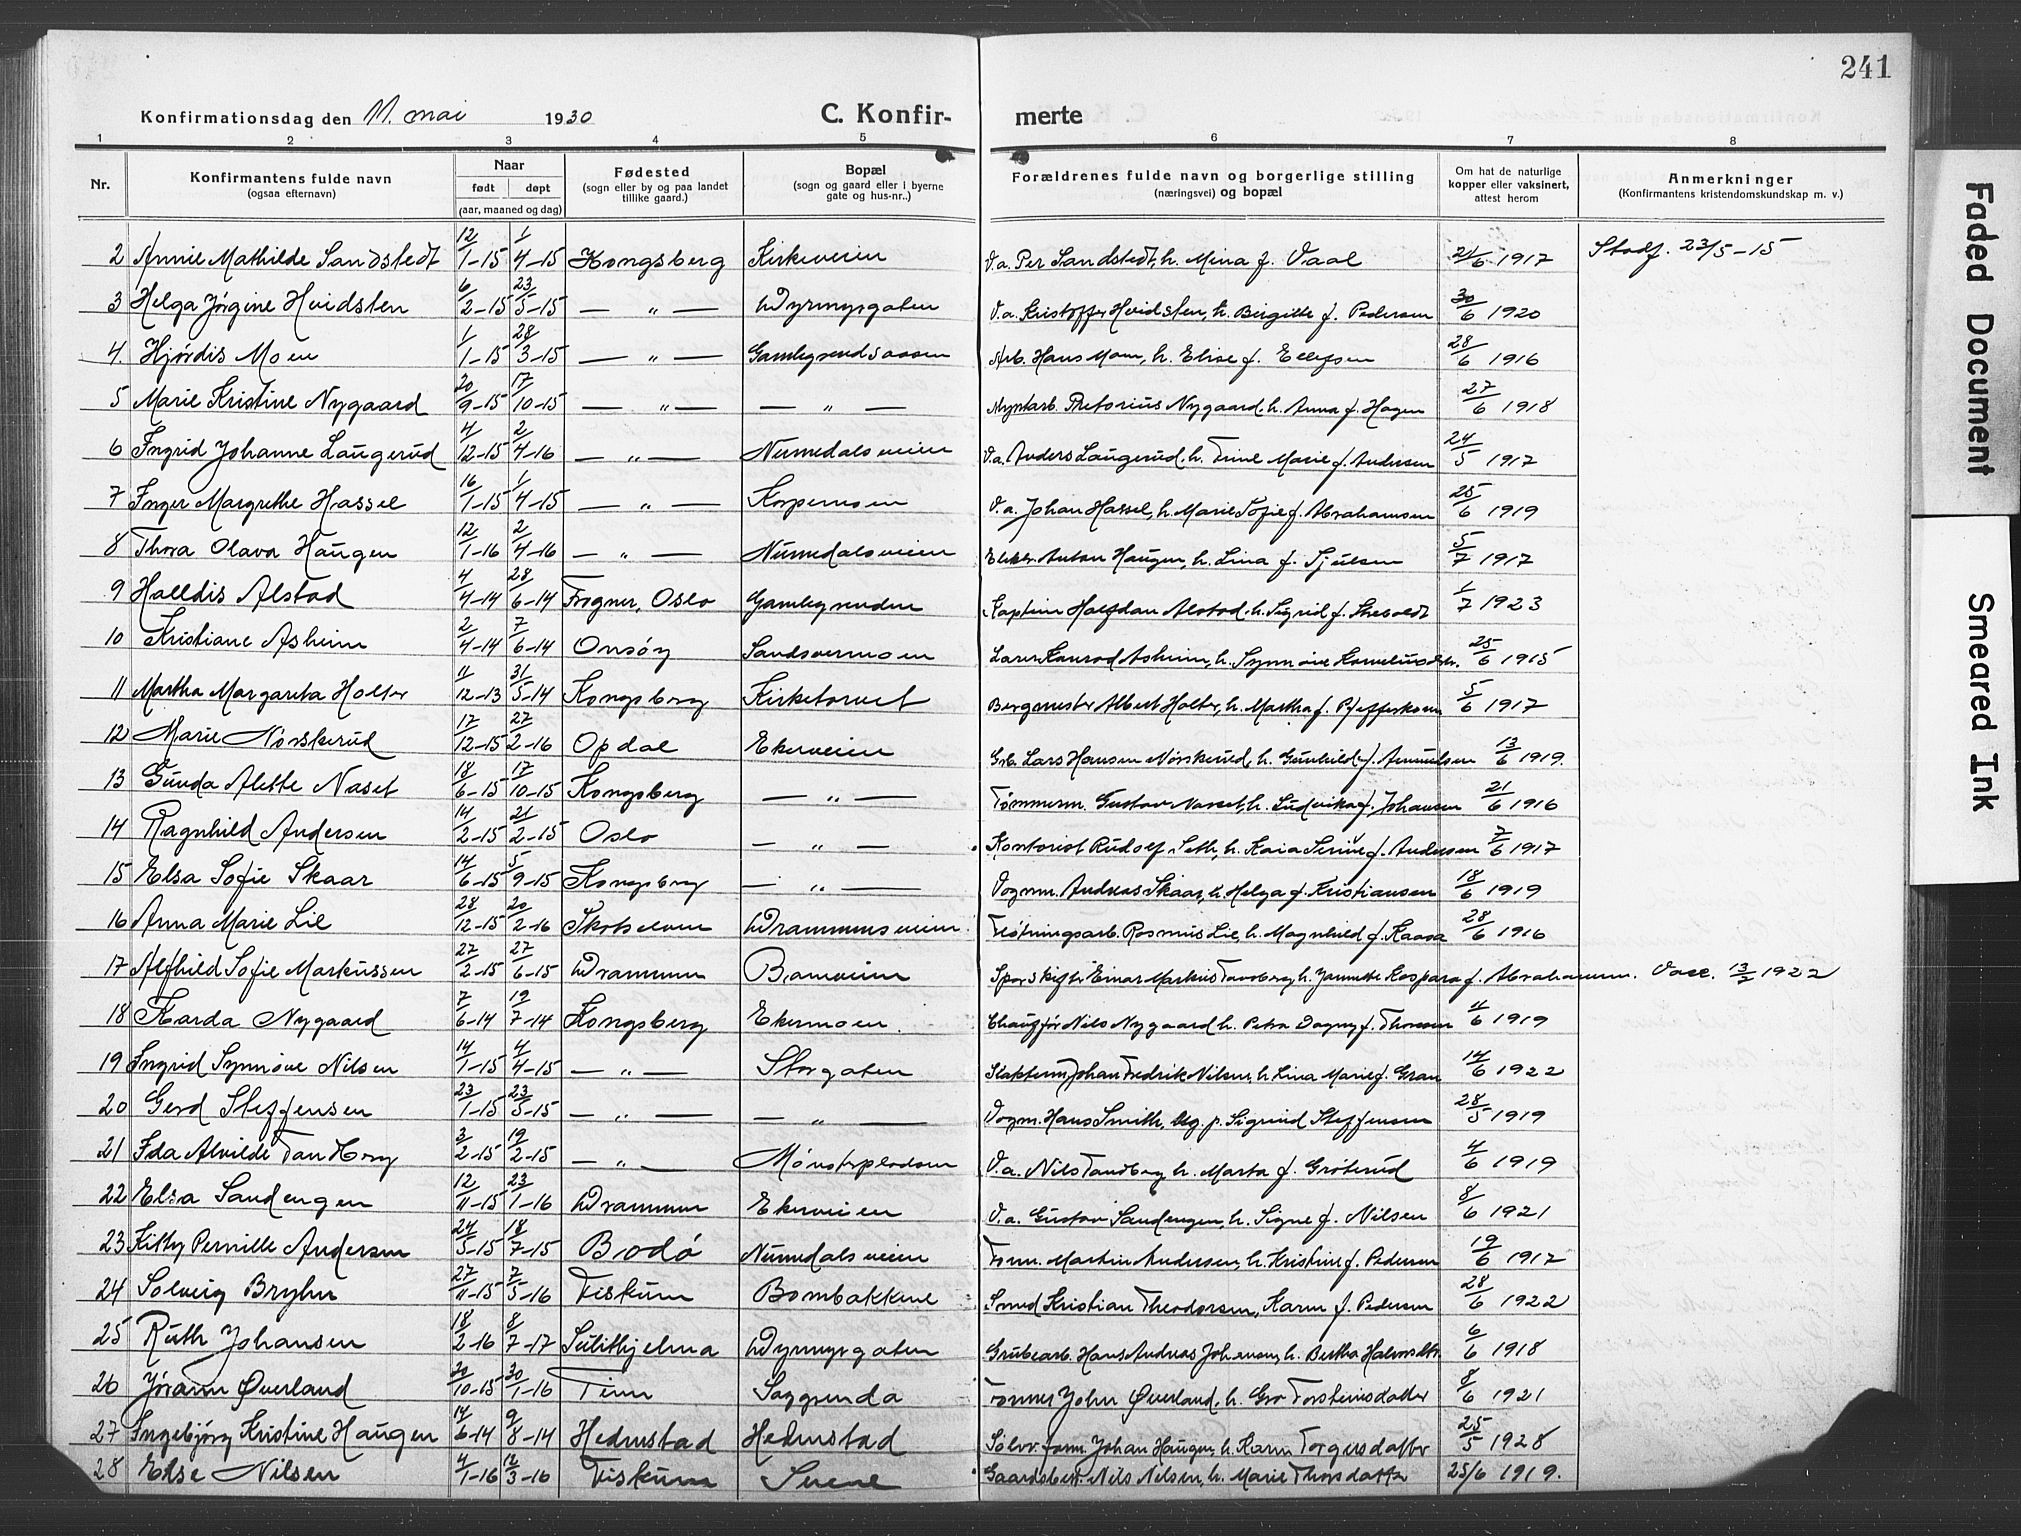 241
Konfirmationsdag den 11. mai 1930
C. Konfir-
merte
1 2 3 4 5 6 7 8
Nr.
Konfirmantens fulde navn
(ogsaa efternavn)
Naar
født døpt
(aar, maaned og dag)
Fødested
(sogn eller by og paa landet
tillike gaard.)
Bopæl
(sogn og gaard eller i byerne
gate og hus-nr..)
Forældrenes fulde navn og borgerlige stilling
(næringsvei) og bopæl
Om hat de naturlige
kopper eller vaksinert,
attest herom
Anmerkninger
(Konfirmantens kristendomskundskap m. v.)
2 Annie Mathilde Sandstedt 12/1-15 1/4-15 Kongsberg Kirkeveien V.a. Per Sandstedt, h. Mina f. Vaal 21/6 1917 Stadf. 23/5-15
3 Helga Jørgine Hvidsten 6/2-15 23/5-15 — " — Dyrmyrgaten V.a. Kristoffer Hvidsten, h. Birgitte f. Pedersen 30/6 1920
4. Hjørdis Moen 1/1-15 28/3-15 — " — Gamlegrendaasen Arb. Hans Moen, h. Elise f. Ellefsen 28/6 1916
5 Marie Kristine Nygaard 20/9-15 17/10-15 — " — — " — Myntarb. Pretorius Nygaard h. Anna f. Hagen 27/6 1918
6 Ingrid Johanne Laugerud 4/12-15 2/4-16 — " — Numedalsveien V.a. Anders Laugerud, h. Trine Marie f. Andersen 24/5 1917
7 Inger Margrethe Hassel 16/1-15 1/4-15 — " — Korpemoen V.a. Johan Hassel, h. Marie Sofie f. Abrahamsen 25/6 1919
8 Thora Olava Haugen 12/1-16 2/4-16 — " — Numedalsveien Anton Haugen, h. Lina f. Sjulsen 5/7 1917
9 Halldis Alstad 4/4-14 28/6-14 Frogner, Oslo Gamlegrenden Kaptein Halfdan Alstad, h. Sigrid f. 1/7 1923
10 Kristiane Asheim 2/4-14 7/6-14 Onsøy Sandsvermoen Lærer Konrad Asheim, h. Synnøve 25/6 1915
11 Martha Margareta Holter 11/12-13 31/5-14 Kongsberg Kirketorvet Bergmester Albert Holter, h. Martha f. Pfefferkorn 5/6 1917
12 Marie Nørskerud 17/12-15 27/2-16 Opdal Ekerveien Grb. Lars Hansen Nørskerud, h. Gunhild f. Amundsen 13/6 1919.
13 Gunda Alette Naset 18/6-15 17/10-15 Kongsberg — " — Tømmerm. Gustav Naset, h. Ludvika f. Johansen 21/6 1916
14 Ragnhild Andersen 14/2-15 21/2-15 Oslo — " — Kontorist Rudolf Seth, h. Kaia Serine f. Andersen 7/6 1917
15 Elsa Sofie Skaar 14/6-15 5/9-15 Kongsberg — " — Vognm. Andreas Skaar, h. Helga f. Kristiansen 18/6 1919
16 Anna Marie Lie 28/12-15 20/2-16 Skotselven Drammensveien. Fløtningsarb. Rasmus Lie, h. Magnhild f. Kaasa 28/6 1916
17 Alfhild Sofie Markussen 27/2-15 27/6-15 Drammen Baneveien Sporskifter Einar Markus Tandberg h. Jannette Kaspara f. Abrahamsen. Vacc. 13/2 1922
18 Karda Nygaard 7/6-14 19/7-14 Kongsberg Ekermoen. Chauffør Nils Nygaard h. Petra Dagny f. Thorsen 4/6 1919
19 Ingrid Synnøve Nilsen 14/1-15 4/4-15 — " — Storgaten Slakterm. Johan Fredrik Nilsen, h. Lina Marie f. Gran 14/6 1922
20 Gerd Steffensen 23/1-15 23/5-15 — " — — " — Vogm. Hans Smith, Ug. p. Sigrund Steffensen 28/5 1919
21 Ida Alvilde Tandberg 3/2-15 19/2-15 — " — Mønsterpladsen V.a. Nils Tandberg h. Marta f. Grøterud 4/6 1919
22 Elsa Sandengen 12/11-15 23/1-16 Drammen Ekerveien V.a. Gustav Sandengen, h. Signe f. Nilsen 8/6 1921
23 Kitty Pernille Andersen 24/5-15 18/7-15 Bodø Numedalsveien Form. Martin Andersen, h. Kristine f. Pedersen 19/6 1917
24 Solveig Bryhn 27/11-15 7/5-16 Fiskum Bombakkene Smed Kristian Theodorsen, Karen f. Pedersen 28/6 1922
25 Ruth Johansen 18/2-16 8/7-17 Sulithjelma Dyrmyrgaten Grubearb. Hans Andreas Johansen, h. Bertha Halvorsdtr. 6/6 1918
26 Jørann Øverland 20/10-15 30/1-16 Tinn Saggrenda Former John Øverland, h. Gro Torsteinsdatter 8/6 1921
27 Ingebjørg Kristine Haugen 14/6-14 9/8-14 Hedenstad Hedenstad Sølvv.form. Johan Haugen, h. Karen Torgersdatter 25/5 1928
28 Else Nilsen 4/1-16 12/3-16 Fiskum Gaardsbest. Nils Nilsen, h. Marie Thorsdatter 25/6 1919.
Faded Document
Smeared Ink